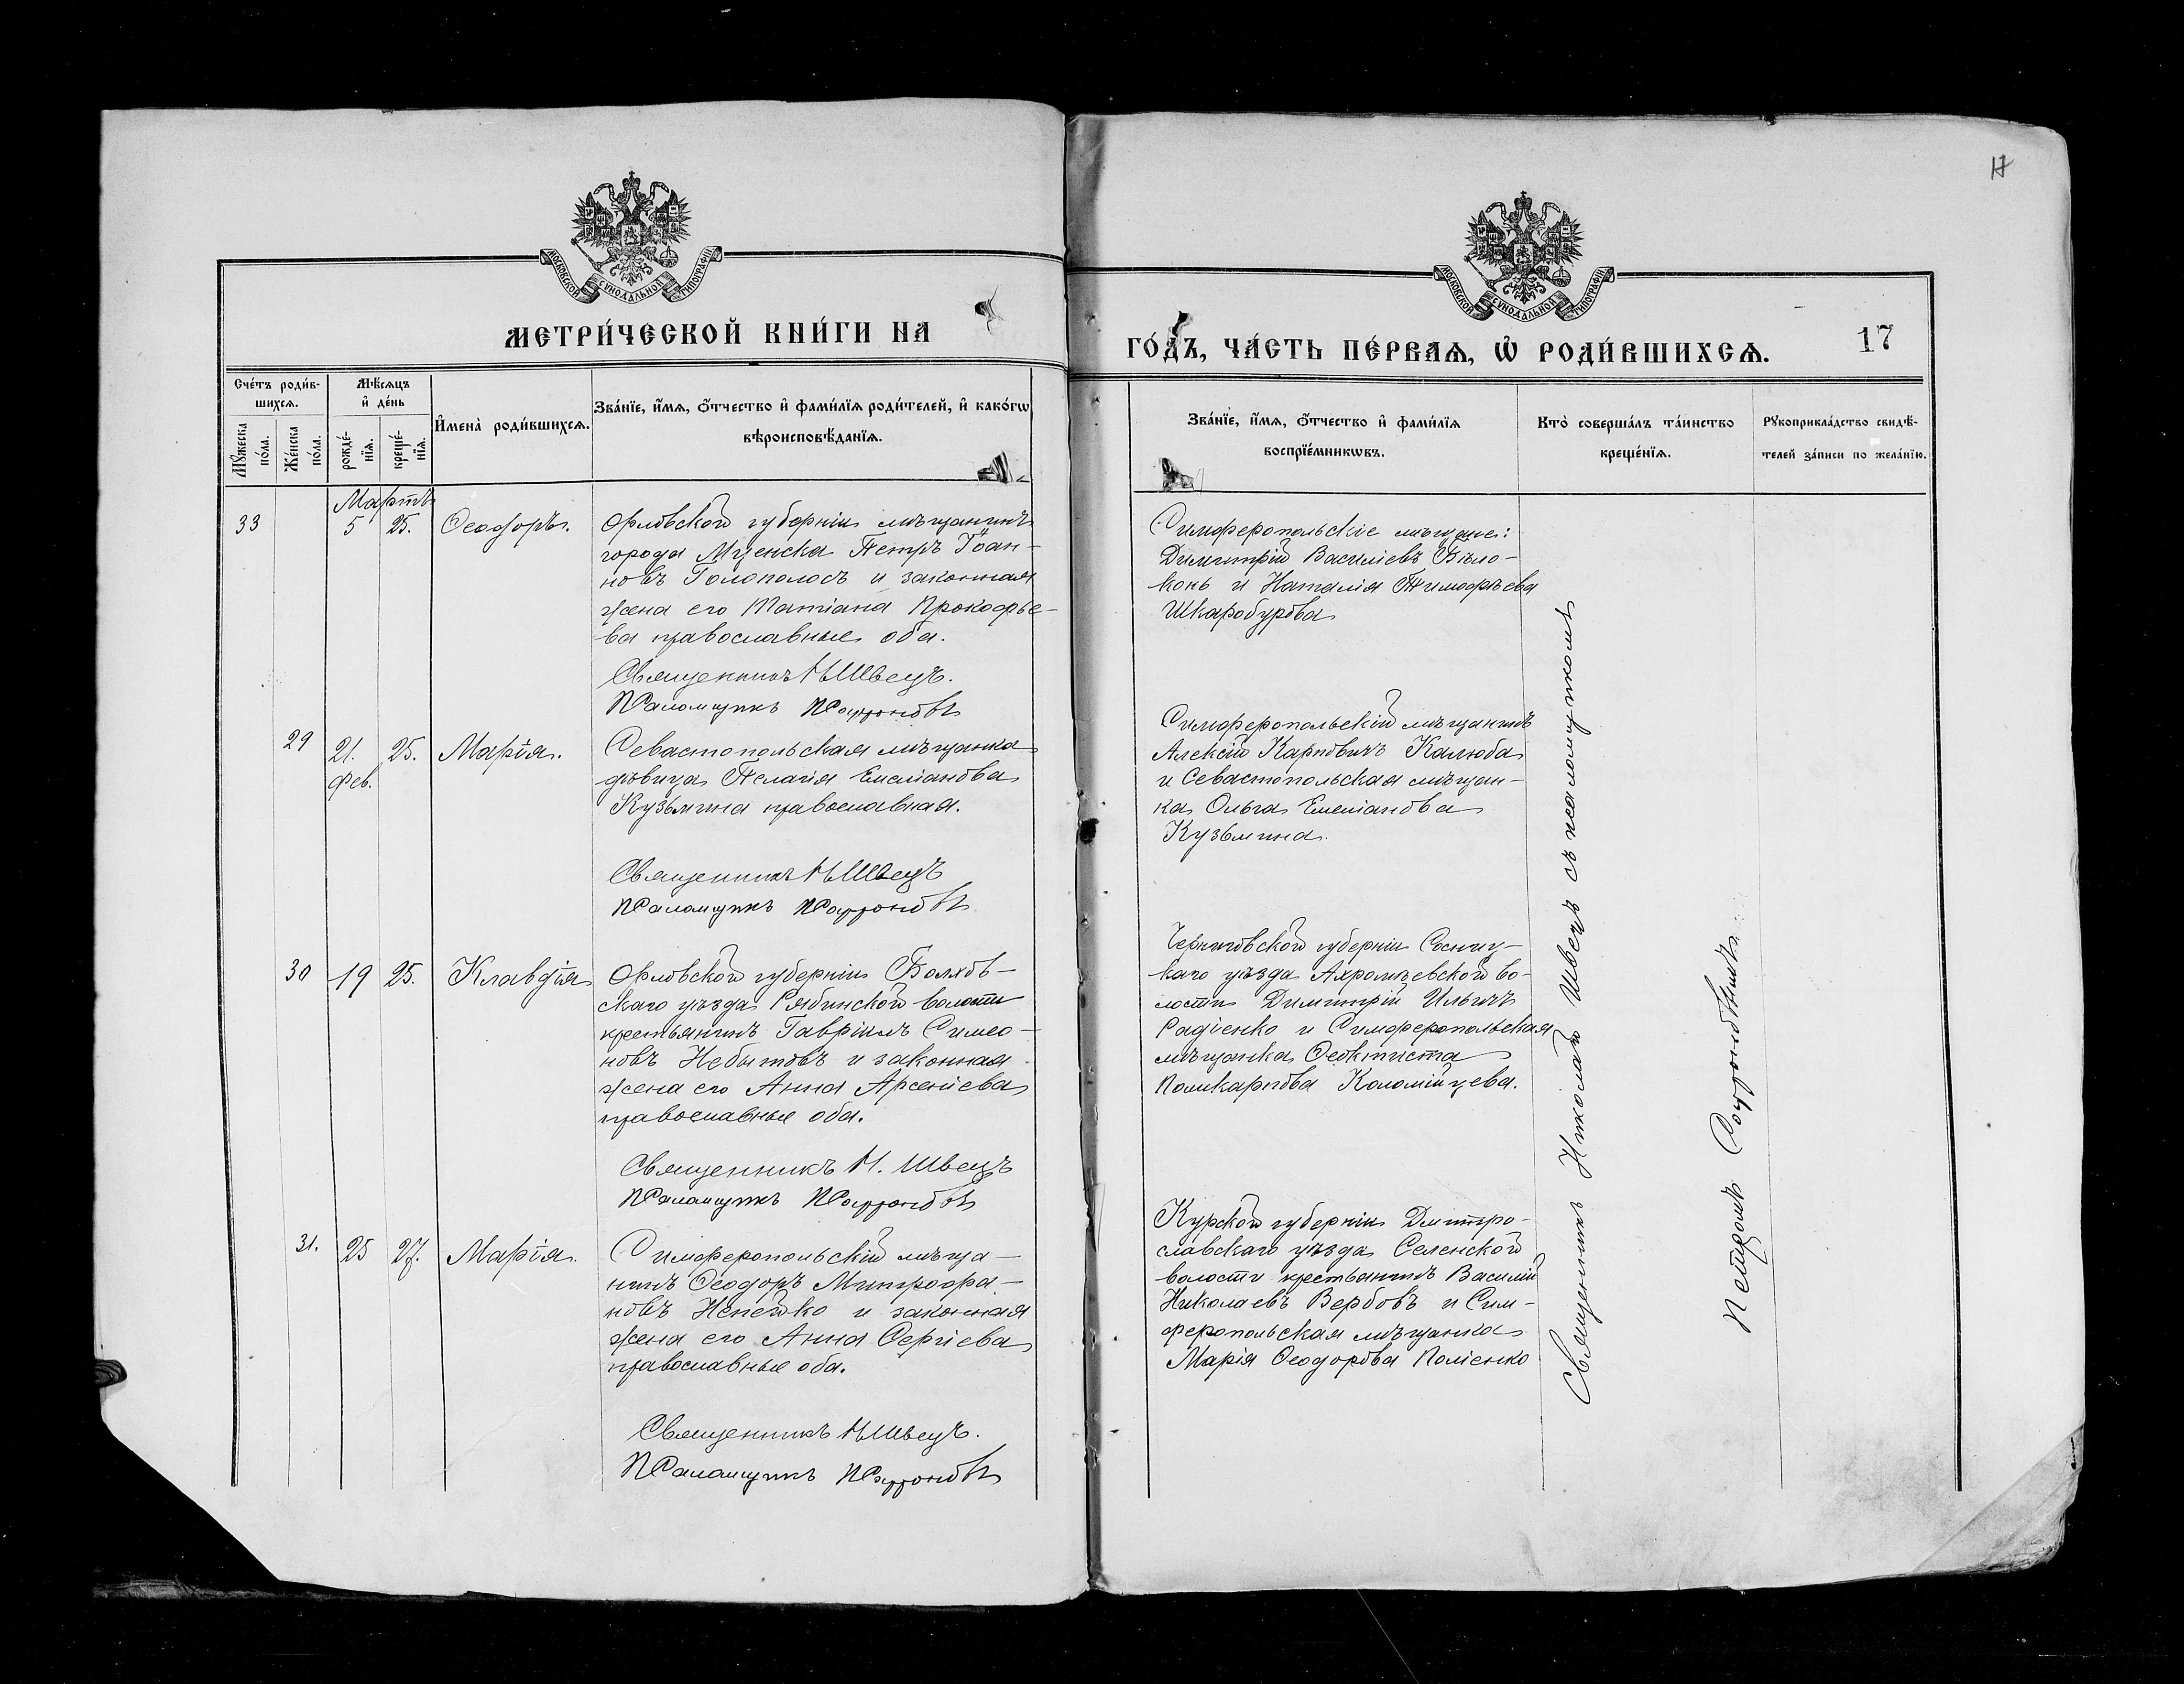 17
МОСКОВСКОЙ СѴНОДАЛЬНОЙ ТИПОГРАФІИ
МОСКОВСКОЙ СѴНОДАЛЬНОЙ ТИПОГРАФІИ
МЕТРИ́ЧЕСКОЙ КНИ́ГИ НА
ГО́ДЪ, ЧА́СТЬ ПЕ́РВАѦ, Ѡ РОДИ́ВШИХСѦ.
17
Сче́тъ роди́в-
шихсѧ.
Мѣ́сѧцъ
и де́нь
Мꙋ́жеска
по́ла.
Же́нска
по́ла.
рожде́-
нїѧ.
креще́-
нїѧ.
Имена̀ роди́вшихсѧ.
Зва́нїе, и́мѧ, о́тчество и фами́лїѧ роди́телей, и како́гѡ
вѣроисповѣ́данїѧ.
Зва́нїе, и́мѧ, о́тчество и фами́лїѧ
воспрїе́мникѡвъ.
Кто̀ соверша́лъ та́инство
креще́нїѧ.
Рꙋкоприкла́дство свидѣ́-
телей за́писи по жела́нїю.
Мартъ
33
5
25.
Ѳеодоръ.
Орловской губерніи мѣщанинъ
города Мценска Петръ Іоан-
новъ Голополосъ и законная
жена его Татіана Прокофье-
ва православные оба.
Священникъ Н Швецъ.
Псаломщикъ П Софроновъ
Симферопольскіе мѣщане:
Димитрій Василіевъ Бѣло-
конь и Наталія Тимофѣева
Шкаробурова
29
21.
Фев.
25.
Марія.
Севастопольская мѣщанка
дѣвица Пелагія Емеліанова
Кузьмина православная.
Священникъ Н Швецъ
Псаломщикъ П Софроновъ
Симферопольскій мѣщанинъ
Алексій Карповичъ Калюба
и Севастопольская мѣщан-
ка Ольга Емеліанова
Кузьмина.
30
19
25.
Клавдія
Орловской губерніи Болхов-
скаго уѣзда Рябинской волости
крестьянинъ Гавріилъ Симео-
новъ Небытовъ и законная
жена его Анна Арсеніева
православные оба.
Священникъ Н. Швецъ
Псаломщикъ П Софроновъ
Черниговской губерніи Сосниц-
каго уѣзда Ахрамѣевской во-
лости Димитрій Ильичъ
Радіенко и Симферопольская
мѣщанка Ѳеоктиста
Поликарпова Коломійцева.
31.
25
27.
Марія.
Симферопольскій мѣща-
нинъ Ѳеодоръ Митрофа-
новъ Непейко и законная
жена его Анна Сергіева
православные оба.
Священникъ Н Швецъ.
Псаломщикъ П Софроновъ
Курской губерніи Дмитро-
славскаго уѣзда Селенской
волости крестьянинъ Василій
Николаевъ Вербовъ и Сим-
феропольская мѣщанка
Марія Ѳеодорова Поліенко
Священникъ Николай Швецъ съ псаломщикомъ
Петромъ Софроновымъ.